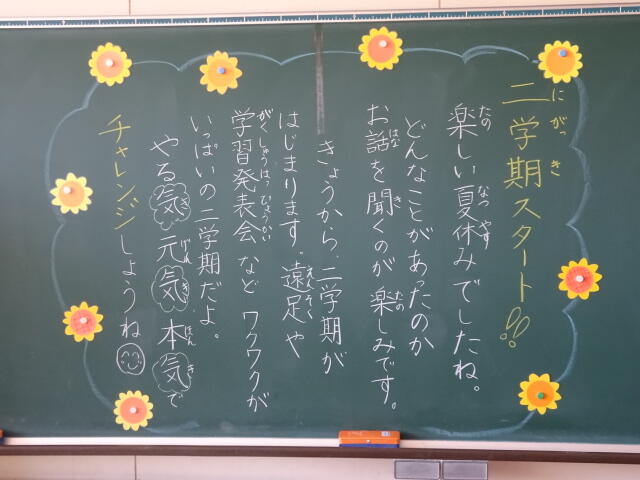 二学期スタート!!
楽しい夏休みでしたね。
どんなことがあったのか
お話を聞くのが楽しみです。
きょうから、二学期が
はじまります。遠足や
学習発表会などワクワクが
いっぱいの二学期だよ。
やる気元気本気で
チャレンジしようね